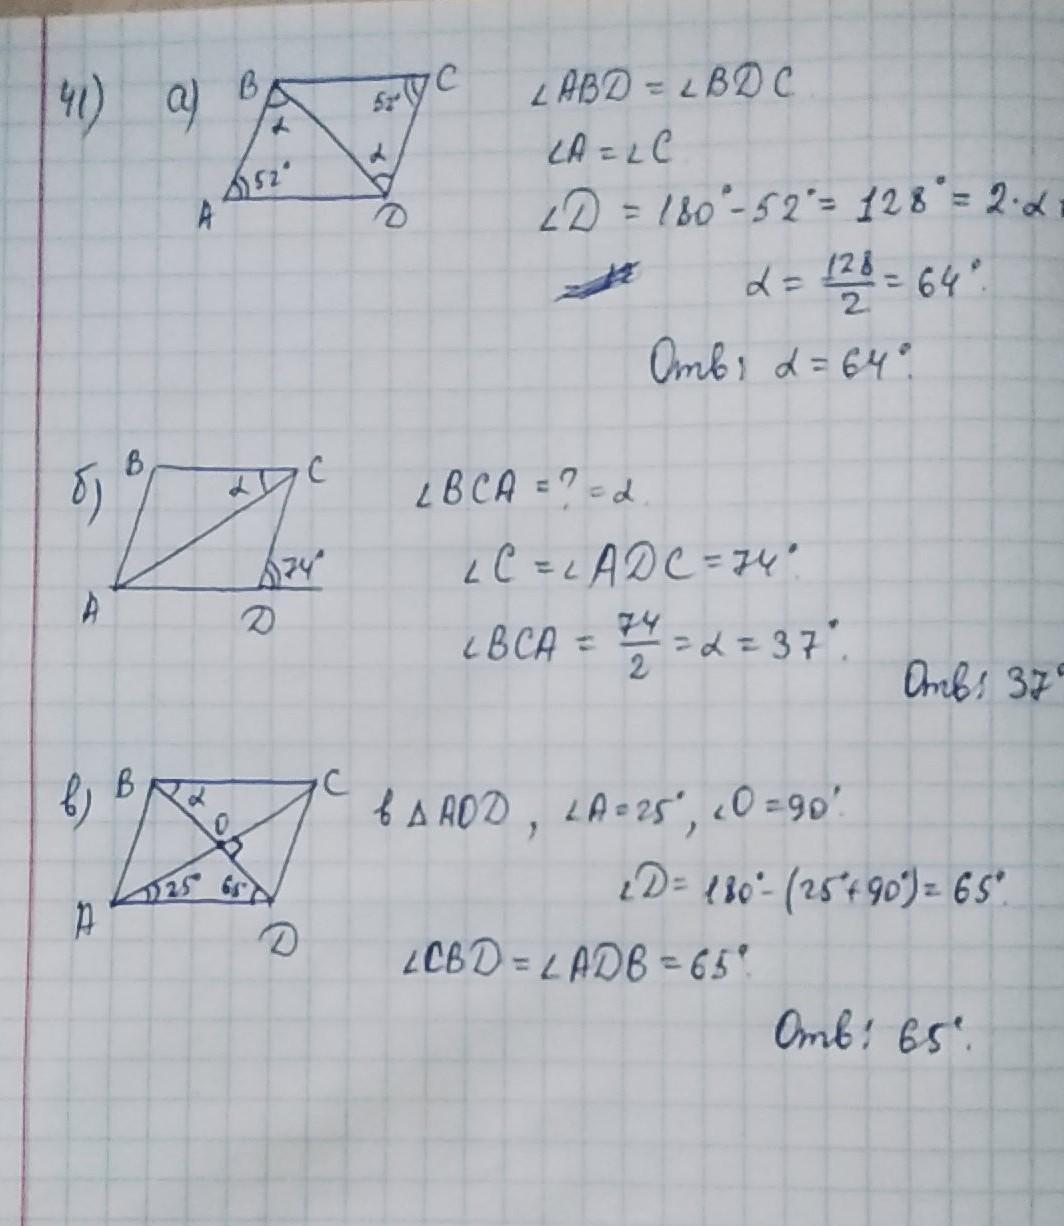 41) а) B C 52° α α 52° A D
∠ABD = ∠BDC
∠A = ∠C
∠D = 180° - 52° = 128° = 2·α
α = 128/2 = 64°.
Отв: α = 64°.
б) B C α 74° A D
∠BCA = ? = α.
∠C = ∠ADC = 74°
∠BCA = 74/2 = α = 37°.
Отв: 37°
в) B C α O 25° 65° A D
в △AOD, ∠A = 25°, ∠O = 90°.
∠D = 180° - (25° + 90°) = 65°.
∠CBD = ∠ADB = 65°.
Отв: 65°.